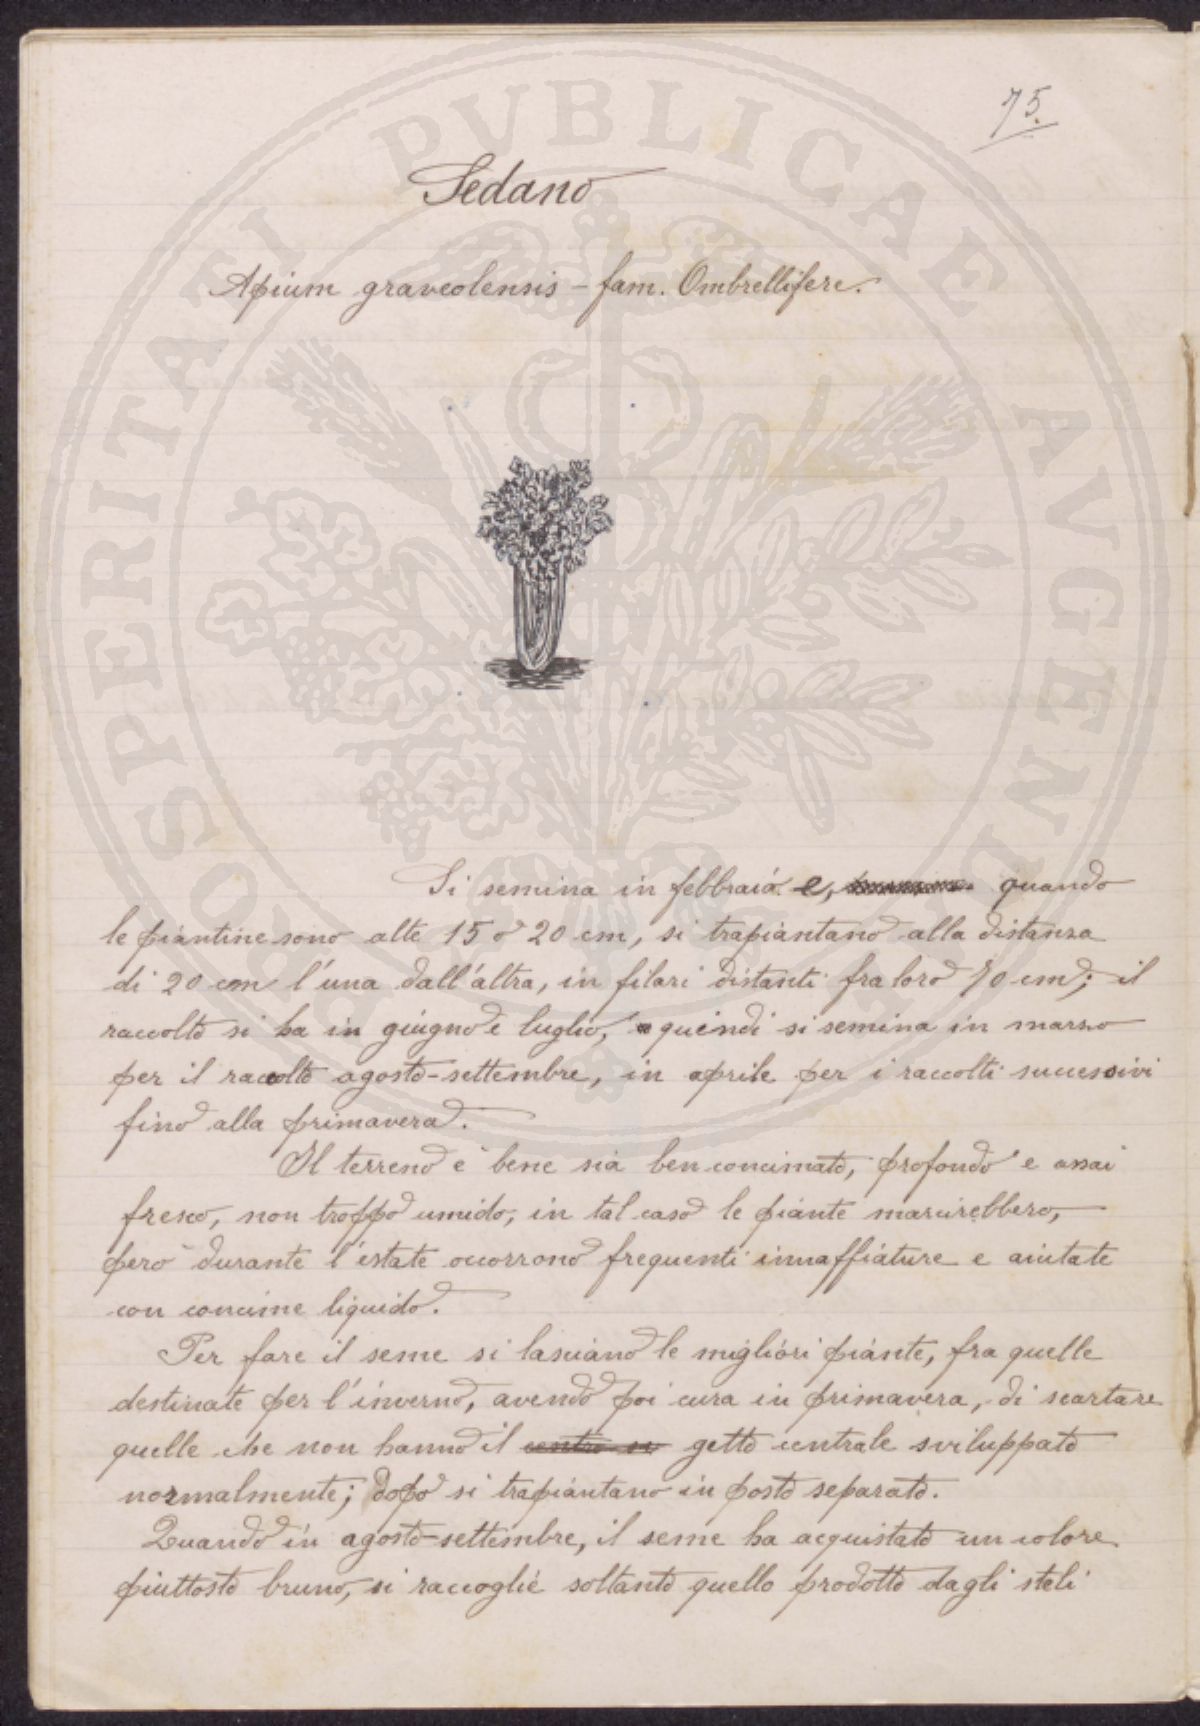 75.
Sedano
Apium graveolensis - fam. Ombrellifere.
Si semina in febbraio e, quando
le piantine sono alte 15 o 20 cm, si trapiantano alla distanza
di 20 cm l'una dall'altra, in filari distanti fra loro 70 cm; il
raccolto si ha in giugno e luglio, quindi si semina in marzo
per il racolto agosto-settembre, in aprile per i raccolti successivi
fino alla primavera.
Il terreno è bene sia ben concimato, profondo e assai
fresco, non troppo umido, in tal caso le piante marcirebbero,
però durante l'estate occorrono frequenti innaffiature e aiutate
con concime liquido.
Per fare il seme si lasciano le migliori piante, fra quelle
destinate per l'inverno, avendo poi cura in primavera, di scartare
quelle che non hanno il centro si getto centrale sviluppato
normalmente; dopo si trapiantano in posto separato.
Quando in agosto-settembre, il seme ha acquistato un colore
piuttosto bruno, si raccoglie soltanto quello prodotto dagli steli
PROSPERITATI PVBLICAE AVGENDAE